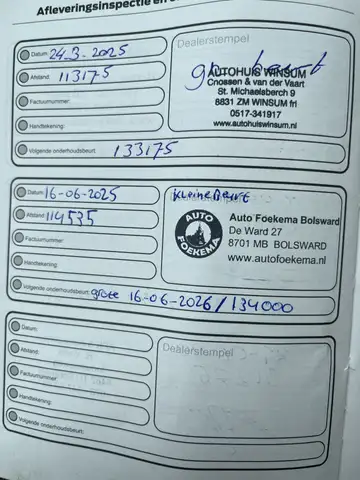 Afleveringsinspectie en
Dealerstempel
Datum: 24-3-2025
gr beurt
AUTOHUIS WINSUM
Cnossen & van der Vaart
St. Michaelsberch 9
8831 ZM WINSUM frl
0517-341917
www.autohuiswinsum.nl
Afstand: 113175
Factuurnummer:
Handtekening:
Volgende onderhoudsbeurt: 133175
Datum: 16-06-2025
kleine Beurt
Afstand: 114535
AUTO FOEKEMA
Auto Foekema Bolsward
De Ward 27
8701 MB BOLSWARD
www.autofoekema.nl
Factuurnummer:
Handtekening:
Volgende onderhoudsbeurt: grote 16-06-2026/134000
Datum:
Dealerstempel
Afstand:
Factuurnummer:
Handtekening:
Volgende onderhoudsbeurt: